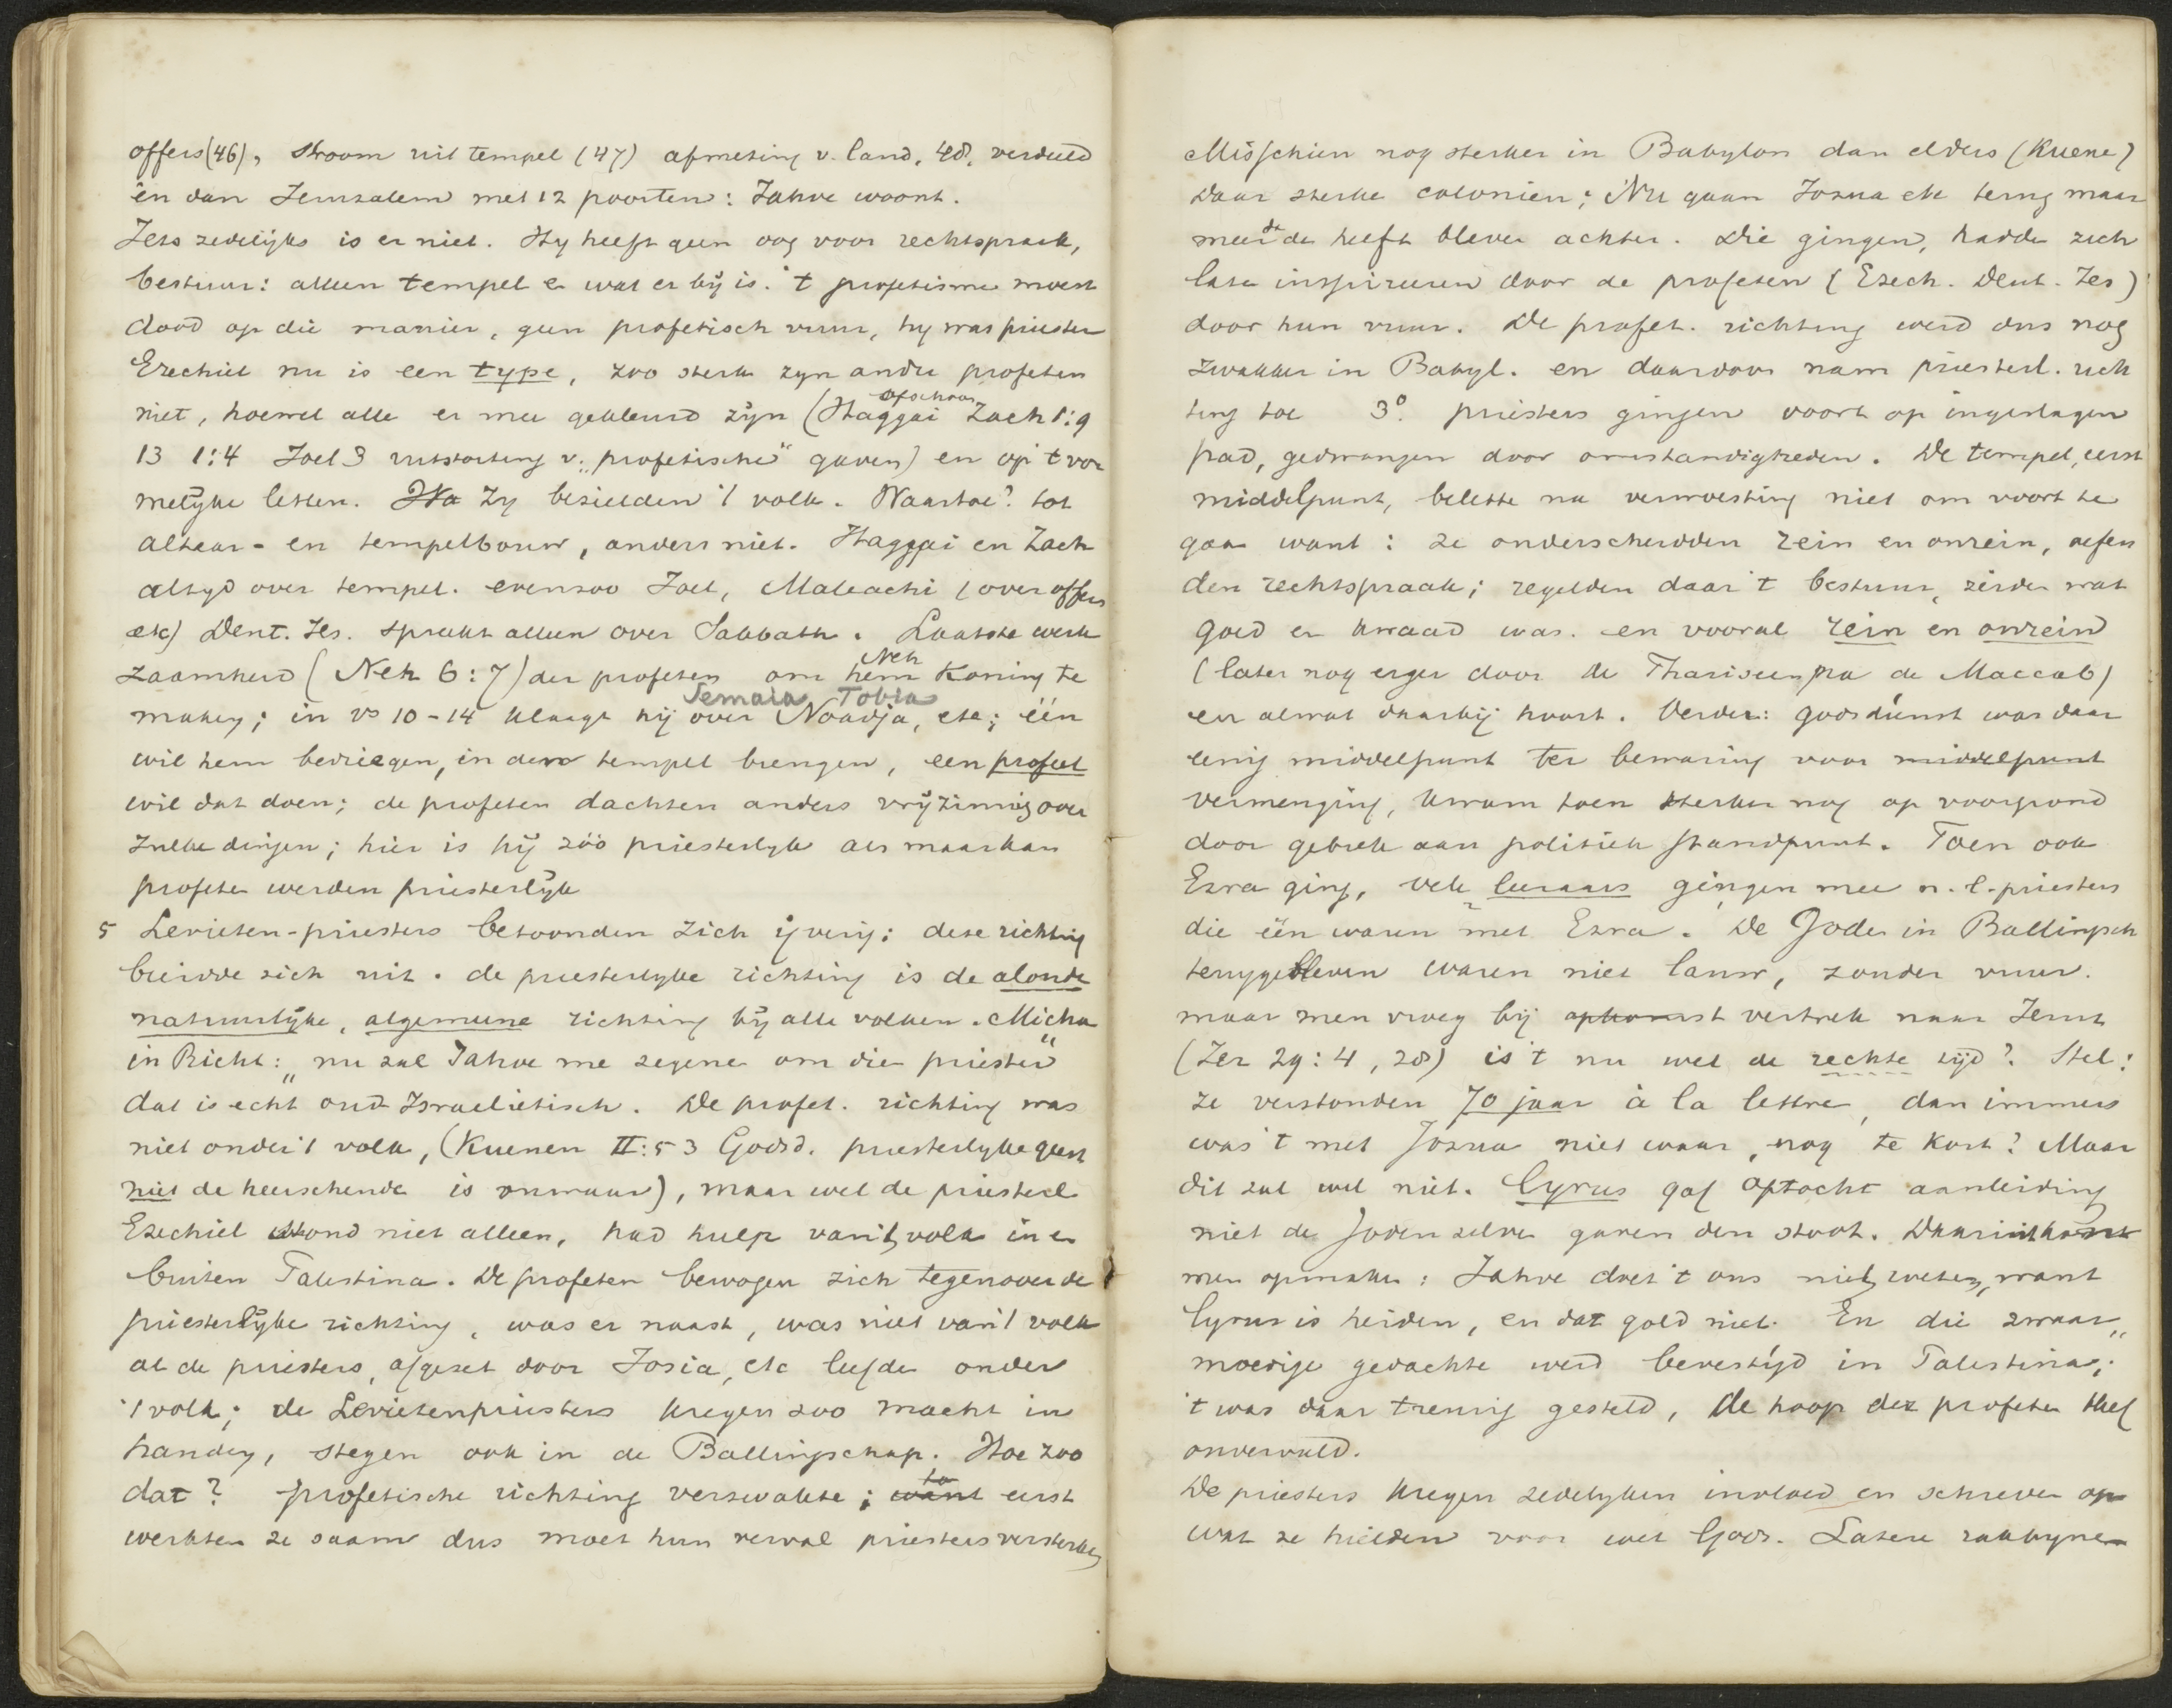 offers (46), stroom uit tempel (47) afmeting v. land, 48, verdeeld
en dan Jeruzalem met 12 poorten: Jahve woont.
Iets zedelijks is er niet. Hy heeft geen oog voor rechtspraak,
bestuur: alleen tempel en wat er bij is. 't profetisme moest
dood op die manier, geen profetisch vuur, hy was priester
Ezechiel nu is een type, zoo sterk zyn andre profeten
niet, hoewel alle er mee gekleurd zijn (Haggai ofschoon Zach 1:9
13 1:4 Joel 3 uitstorting v. „profetische" gaven) en op 't vor
melijke letten. Zy bezielden 't volk. Naartoe? tot
altaar- en tempelbouw, anders niet. Haggai en Zach
altyd over tempel. evenzoo Joel, Maleachi (over offers
etc) Deut. Jes. spreekt alleen over Sabbath. Laatste werk
Neh
zaamheid (Neh 6:7) der profeten om hem Koning te
Semaia Tobia
maken; in vs 10-14 klaagt hij over Noadja, etc; één
wil hem bedriegen, in den tempel brengen, een profeet
wil dat doen; de profeten dachten anders vrijzinnig over
zulke dingen; hier is hij zóó priesterlyk als maar kan
profeten werden priesterlijk
5 Levieten-priesters betoonden zich ijverig: deze richting
breidde zich uit. de priesterlyke richting is de aloude
natuurlijke, algemeene richting bij alle volken. Micha
in Richt: „nu zal Jahve me zegene om die priester"
dat is echt oud Israelietisch. De profet. richting was
niet onder 't volk, (Kuenen II:53 Godsd. priesterlyke geest
niet de heerschende is onwaar), maar wel de priesterl
Ezechiel stond niet alleen, had hulp van 't volk in en
buiten Palestina. De profeten bewogen zich tegenover de
priesterlijke richting, was er naast, was niet van 't volk
al de priesters, afgezet door Josia, etc leefden onder
't volk; de Levietenpriesters kregen zoo macht in
handen, stegen ook in de Ballingschap. Hoe zoo
dat? profetische richting verzwakte; want eerst
werkten ze saam dus moet hun verval priesters versterken
Misschien nog sterker in Babylon dan elders (Kuene)
daar sterke colonien; Nu gaan Jozua etc terug maar
meerde heeft bleven achter. Die gingen, hadde zich
late inspireeren door de profeten (Ezech. Deut. Jes)
door hun vuur. De profet. richting werd dus nog
zwakker in Babyl. en daardoor nam priesterl. rich
ting toe 3o. priesters gingen voort op ingeslagen
pad, gedwongen door omstandigheden. De tempel, eerst
middelpunt, belette na verwoesting niet om voort te
gaan want: ze onderscheidden rein en onrein, oefen
den rechtspraak; regelden daar 't bestuur, zeiden wat
goed en kwaad was. en vooral rein en onrein
(later nog erger door de Phariseen na de Maccab)
en alwat daarbij hoort. Verder: godsdienst was daar
eenig middelpunt ter bewaring voor middelpunt
vermenging, kwam toen sterker nog op voorgrond
door gebrek aan politiek standpunt. Toen ook
Ezra ging, vele leeraars gingen mee n.l. priesters
die één waren met Ezra. De Joden in Ballingsch
teruggebleven waren niet lauw, zonder vuur.
maar men vroeg bij opkomst vertrek naar Jeruz
(Jer 29:4, 28) is 't nu wel de rechte tijd? Stel:
ze verstonden 70 jaar à la lettre, dan immers
was 't met Jozua niet waar, nog te kort? Maar
dit zal wel niet. Cyrus gaf optocht aanleiding
niet de Joden zelve gaven den stoot. Daaruit konde
men opmaken: Jahve doet 't ons niet weten, want
Cyrus is heiden, en dat gold niet. En die zwaar„
moedige gedachte werd bevestigd in Palestina;
't was daar treurig gesteld, de hoop der profeten bleef
onvervuld.
De priesters kregen zedelyken invloed en schreven op
wat ze hielden voor wet Gods. Latere rabbynen